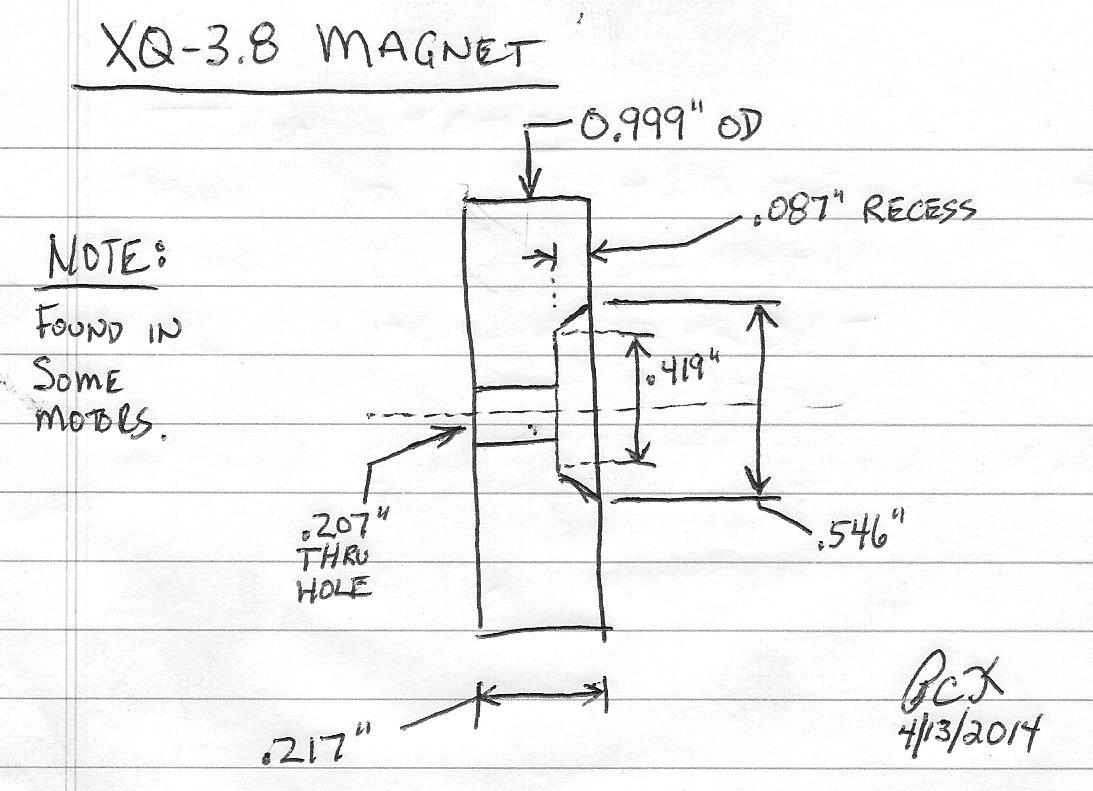 XQ-3.8 MAGNET
0.999" OD
.087" RECESS
NOTE:
FOUND IN
SOME
MOTORS.
.419"
.546"
.207"
THRU
HOLE
.217"
4/13/2014